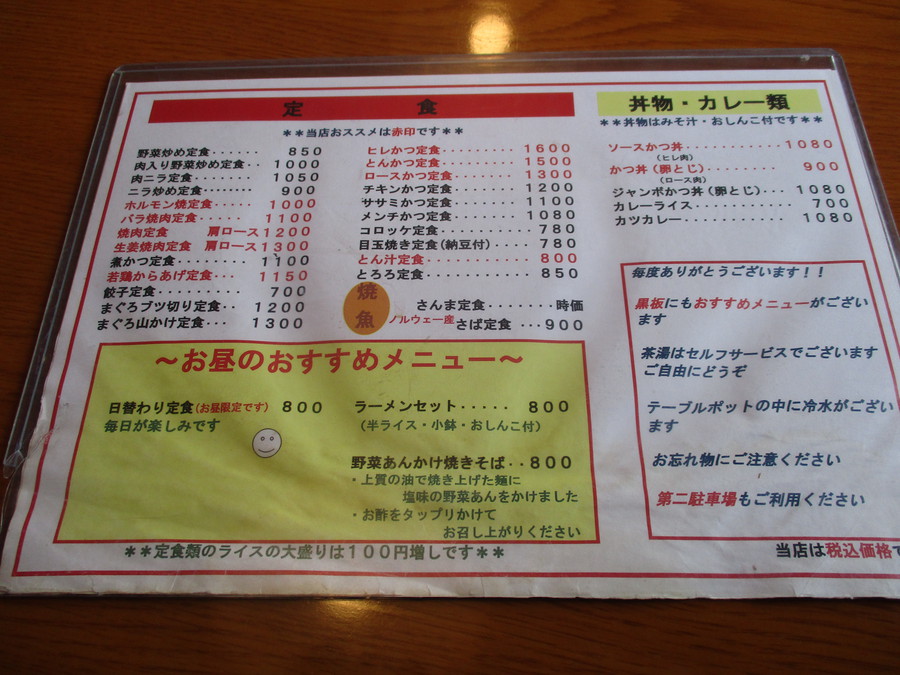 定食
**当店おススメは赤印です**
野菜炒め定食‥‥‥ 850
肉入り野菜炒め定食‥ 1000
肉ニラ定食‥‥‥ 1050
ニラ炒め定食‥‥‥ 900
ホルモン焼定食‥‥ 1000
バラ焼肉定食‥‥ 1100
焼肉定食 肩ロース1200
生姜焼肉定食 肩ロース1300
煮かつ定食‥‥‥‥ 1100
若鶏からあげ定食‥‥ 1150
餃子定食‥‥‥‥ 700
まぐろブツ切り定食‥ 1200
まぐろ山かけ定食‥‥ 1300
ヒレかつ定食‥‥‥‥‥ 1600
とんかつ定食‥‥‥‥‥ 1500
ロースかつ定食‥‥‥‥ 1300
チキンかつ定食‥‥‥‥ 1200
ササミかつ定食‥‥‥‥ 1100
メンチかつ定食‥‥‥‥ 1080
コロッケ定食‥‥‥‥‥ 780
目玉焼き定食(納豆付)‥‥ 780
とん汁定食‥‥‥‥‥ 800
とろろ定食‥‥‥‥‥ 850
焼魚
さんま定食‥‥‥‥時価
ノルウェー産さば定食 ‥・900
丼物・カレー類
**丼物はみそ汁・おしんこ付です**
ソースかつ丼‥‥‥‥‥1080
(ヒレ肉)
かつ丼(卵とじ)‥‥‥‥ 900
(ロース肉)
ジャンボかつ丼(卵とじ)‥・ 1080
カレーライス‥‥‥‥‥ 700
カツカレー‥‥‥‥‥ 1080
毎度ありがとうございます!!
黒板にもおすすめメニューがござい
ます
茶湯はセルフサービスでございます
ご自由にどうぞ
テーブルポットの中に冷水がござい
ます
お忘れ物にご注意ください
第二駐車場もご利用ください
~お昼のおすすめメニュー~
日替わり定食(お昼限定です) 800
毎日が楽しみです
ラーメンセット‥‥・ 800
(半ライス・小鉢・おしんこ付)
野菜あんかけ焼きそば‥800
・上質の油で焼き上げた麺に
塩味の野菜あんをかけました
・お酢をタップリかけて
お召し上がりください
**定食類のライスの大盛りは100円増しです**
当店は税込価格で